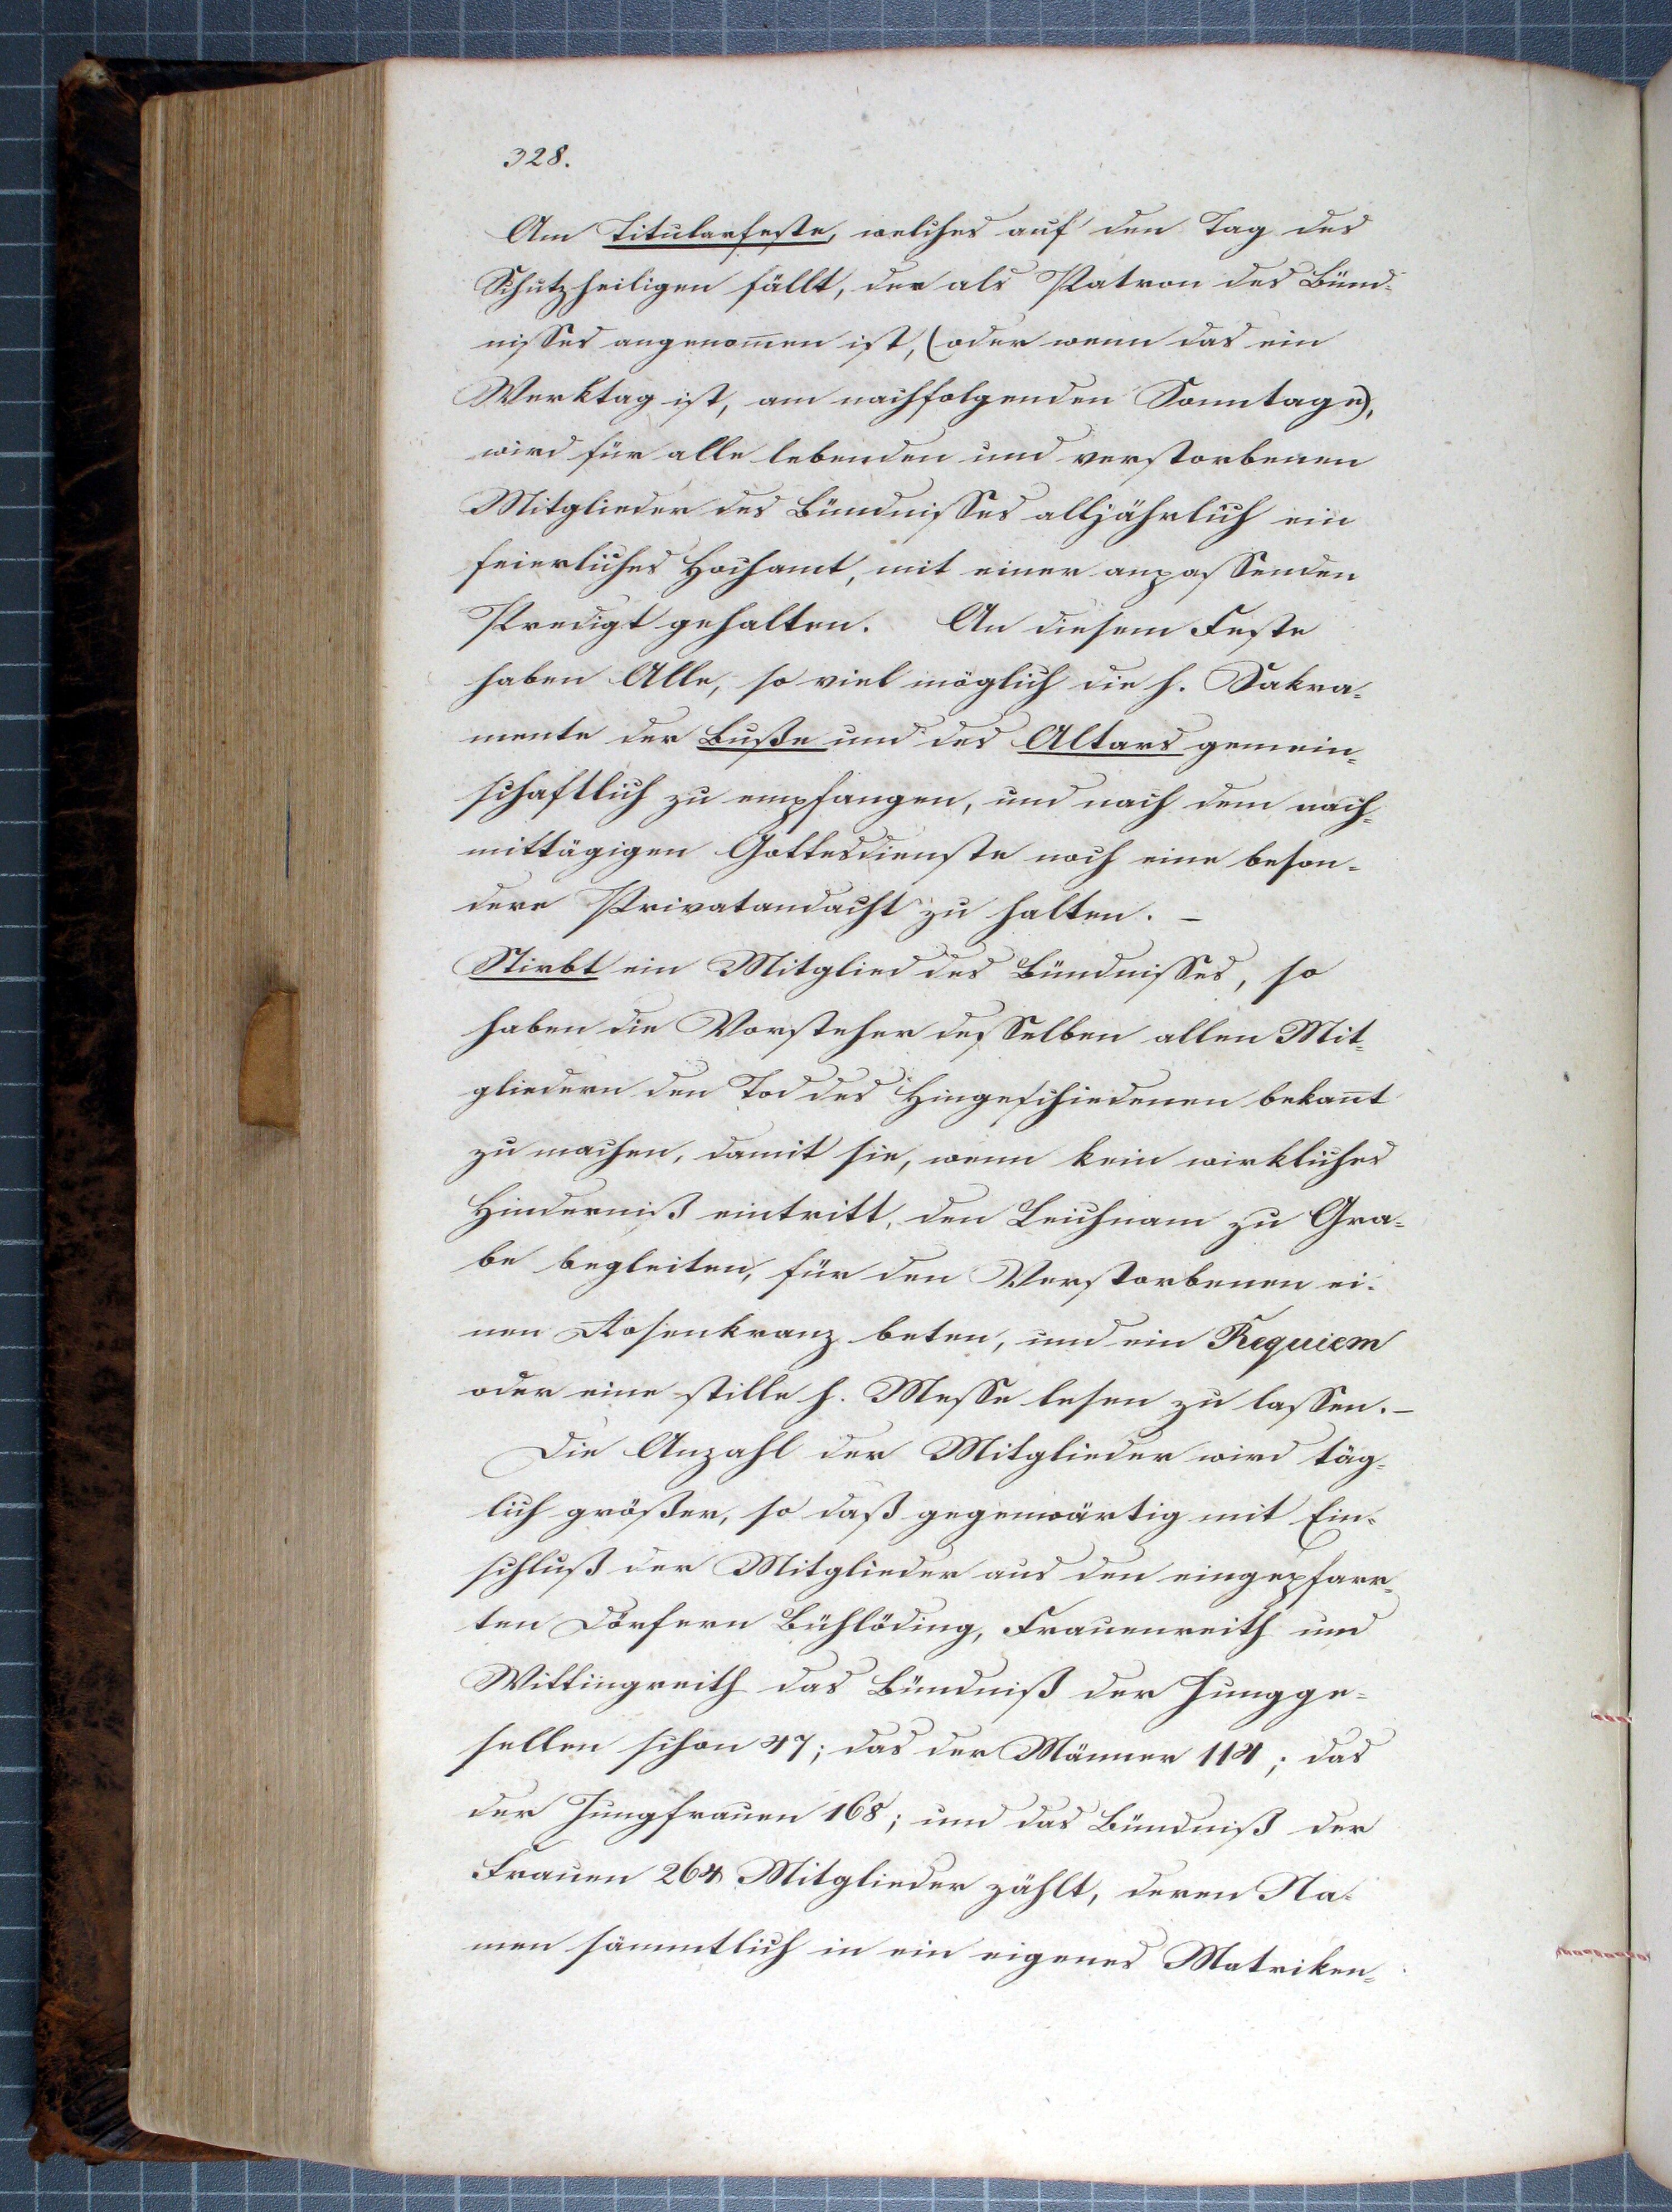 328.
Am Titularfeste, welches auf den Tag des
Schutzheiligen fällt, der als Patron des Bünd-
nisses angenom̅en ist, (oder wenn das ein
Werktag ist, am nachfolgenden Sonntage),
wird für alle lebenden und verstorbenen
Mitglieder des Bündnisses alljährlich ein
feierliches Hochamt, mit einer anpassenden
Predigt gehalten. An diesem Feste
haben Alle, so viel möglich die h. Sakra-
mente der Buße und des Altars gemein-
schaftlich zu empfangen, und nach dem nach-
mittägigen Gottesdienste noch eine beson-
dere Privatandacht zu halten. –
Stirbt ein Mitglied des Bündnisses, so
haben die Vorsteher desselben allen Mit-
gliedern den Tod des Hingeschiedenen bekan̅t
zu machen, damit sie, wenn kein wirkliches
Hinderniß eintritt, den Leichnam zu Gra-
be begleiten, für den Verstorbenen ei-
nen Rosenkranz beten, und ein Requiem
oder eine stille h. Messe lesen zu lassen. –
Die Anzahl der Mitglieder wird täg-
lich größer, so daß gegenwärtig mit Ein-
schluß der Mitglieder aus den eingepfarr-
ten Dörfern Bichlöding, Frauenreith und
Wittingreith das Bündniß der Jungge-
sellen schon 47; das der Männer 114; das
der Jungfrauen 168; und das Bündniß der
Frauen 264 Mitglieder zählt, deren Na-
men sämmtlich in ein eigenes Matriken-